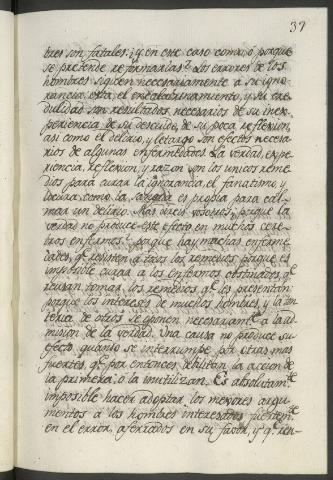 37
bres son fatales: ¿y en este caso como, ó porque
se pretende reformarlas? Los errores de los
hombres siguen necesariamente á su igno-
rancia: esta, el encabezamiento, y su cre-
dulidad son resultados necesarios de su inex-
periencia, de su descuido, de su poca reflexion,
así como el delirio, y letargo son efectos necesa-
rios de algunas enfermedades. La verdad, expe-
riencia, reflexion, y razon son los unicos reme-
dios para curar la ignorancia, el fanatismo, y
locura, como la sangria es propia para cal-
mar un delirio. Mas direis vosotros, ¿porque la
verdad no produce este efecto en muchos cere-
bros enfermos? porque hay muchas enferme-
dades, q.e resisten á todos los remedios; porque es
imposible curar á los enfermos obstinados, q.e
reusan tomar los remedios, q.e les presentan:
porque los intereses de muchos hombres, y la ton-
teria de otros se oponen necesariam.te á la ad-
mision de la verdad. Una causa no produce su
efecto, quando se interrumpe por otras mas
fuertes, q.e por entonces debilitan la accion de
la primera, ó la inutilizan. Es absolutam.te
imposible hacer adoptar los mejores argu-
mentos á los hombres interesados fuertem.te
en el error, aferrados en su favor, y q.e ren-